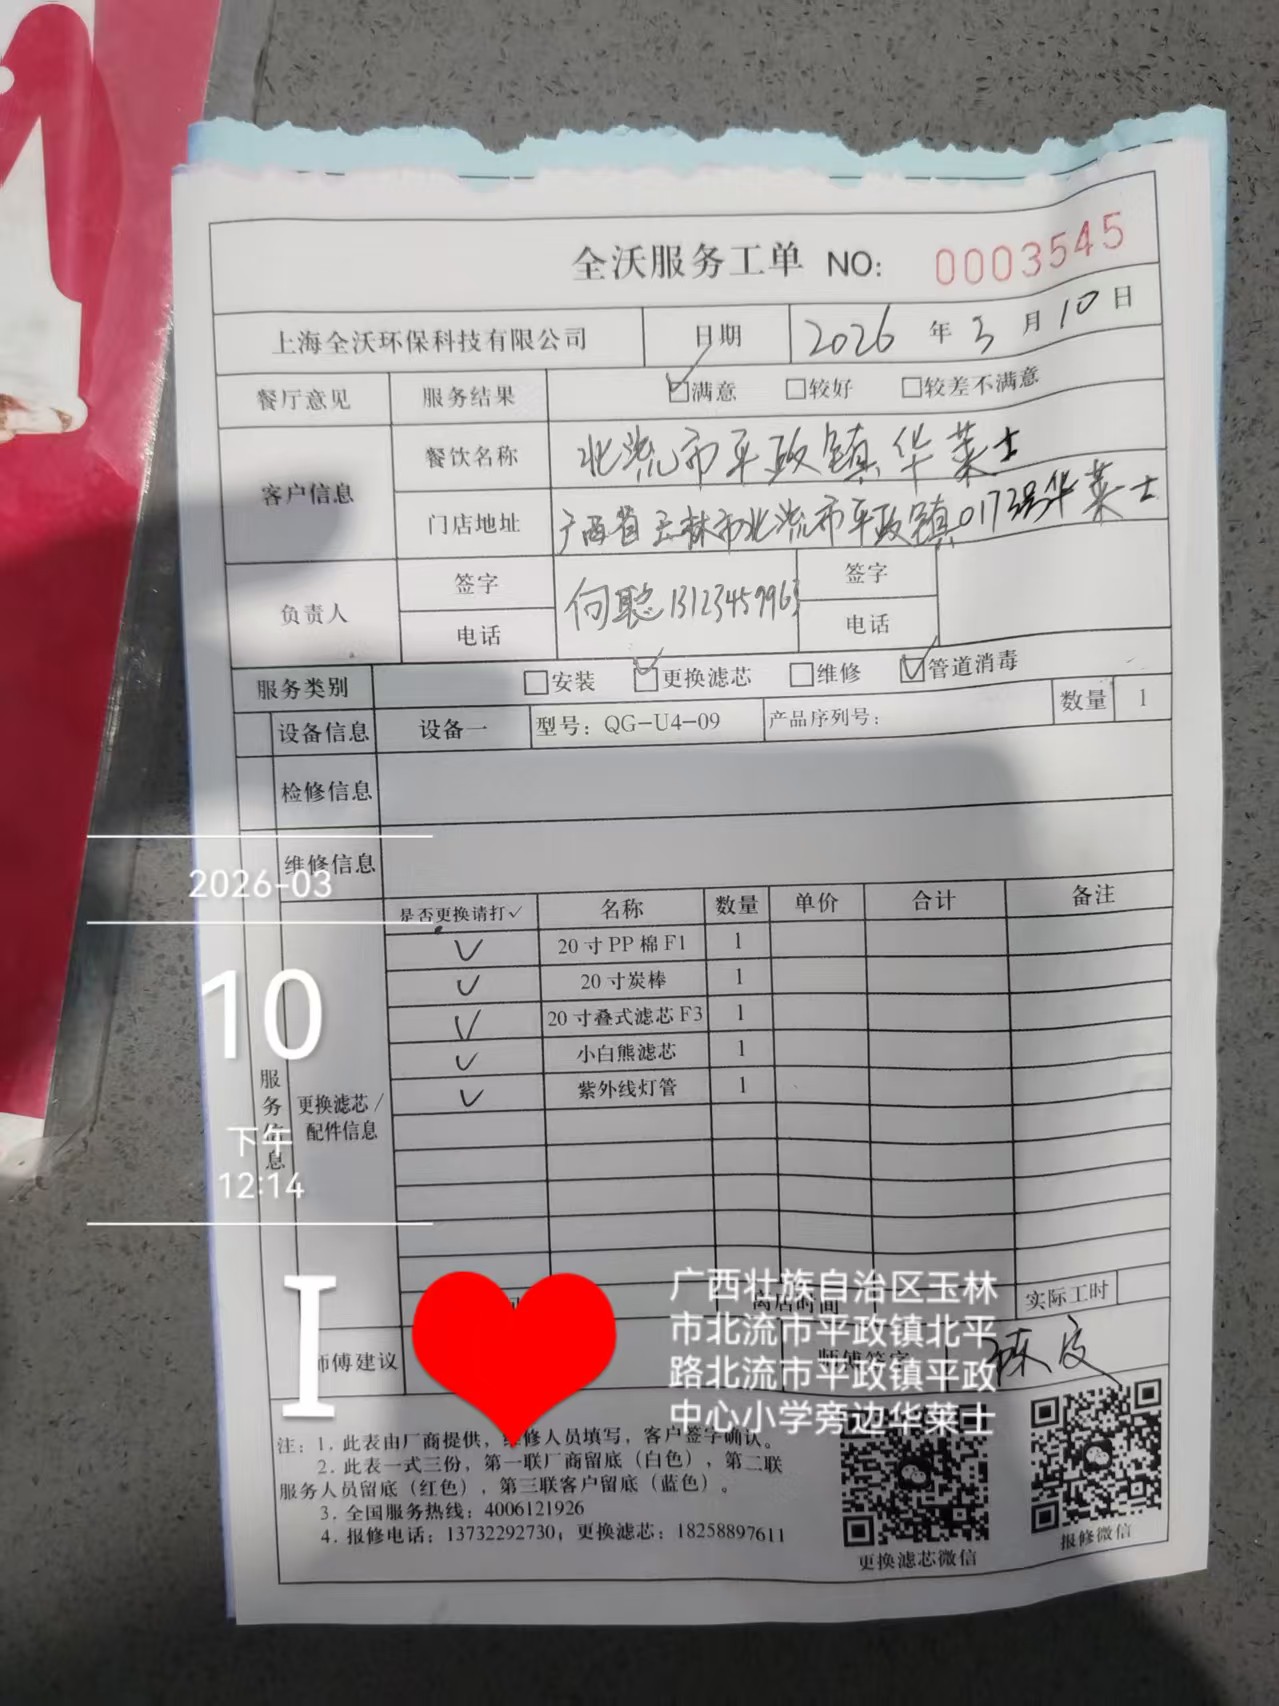 全沃服务工单 NO: 0003545
上海全沃环保科技有限公司 日期 2026 年 3 月 10 日
餐厅意见 服务结果 ☑满意 □较好 □较差不满意
客户信息 餐饮名称 北流市平政镇华莱士
门店地址 广西省玉林市北流市平政镇0173号华莱士
负责人 签字 何聪 1312345996 签字
电话 电话
服务类别 □安装 ☑更换滤芯 □维修 ☑管道消毒
设备信息 设备一 型号: QG-U4-09 产品序列号: 数量 1
检修信息
维修信息
是否更换请打✓ 名称 数量 单价 合计 备注
✓ 20寸PP棉F1 1
✓ 20寸炭棒 1
✓ 20寸叠式滤芯F3 1
✓ 小白熊滤芯 1
✓ 紫外线灯管 1
服务信息
更换滤芯/
配件信息
离店时间 实际工时
师傅建议 师傅签字
注: 1. 此表由厂商提供, 维修人员填写, 客户签字确认。
2. 此表一式三份, 第一联厂商留底 (白色), 第二联
服务人员留底 (红色), 第三联客户留底 (蓝色)。
3. 全国服务热线: 4006121926
4. 报修电话: 13732292730; 更换滤芯: 18258897611
更换滤芯微信
报修微信
2026-03
10
下午
12:14
I
广西壮族自治区玉林
市北流市平政镇北平
路北流市平政镇平政
中心小学旁边华莱士